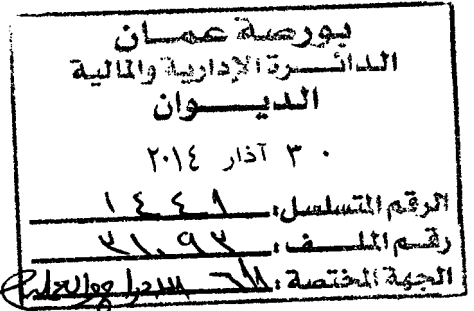 بورصة عمان
الدائرة الإدارية والمالية
الديوان
٣٠ آذار ٢٠١٤
الرقم المتسلسل: ١٤٤١
رقم الملف: ٣١٠٩٣
الجهة المختصة: